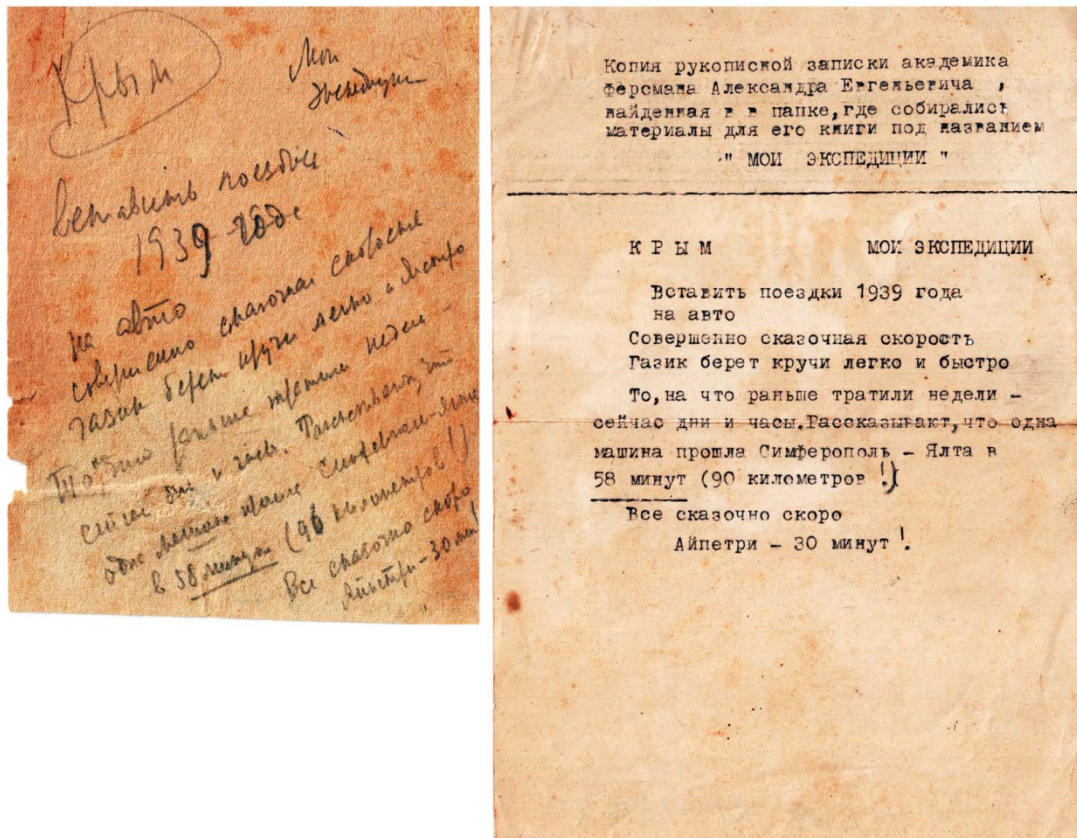 Крым
Мои
Экспедиции
Вставить поездки
1939 года
на авто
совершенно сказочная скорость
газик берет кручи легко и быстро
То, на что раньше тратили недели –
сейчас дни и часы. Рассказывают, что
одна машина прошла Симферополь-Ялта
в 58 минут (90 километров!)
Все сказочно скоро
Айпетри-30 мин!
Копия рукописной записки академика
ферсмана Александра Евгеньевича ,
найденная в в папке, где собирались
материалы для его книги под названием
" МОИ ЭКСПЕДИЦИИ "
К Р Ы М МОИ ЭКСПЕДИЦИИ
Вставить поездки 1939 года
на авто
Совершенно сказочная скорость
Газик берет кручи легко и быстро
То, на что раньше тратили недели –
сейчас дни и часы. Рассказывают, что одна
машина прошла Симферополь – Ялта в
58 минут (90 километров !)
Все сказочно скоро
Айпетри – 30 минут !.